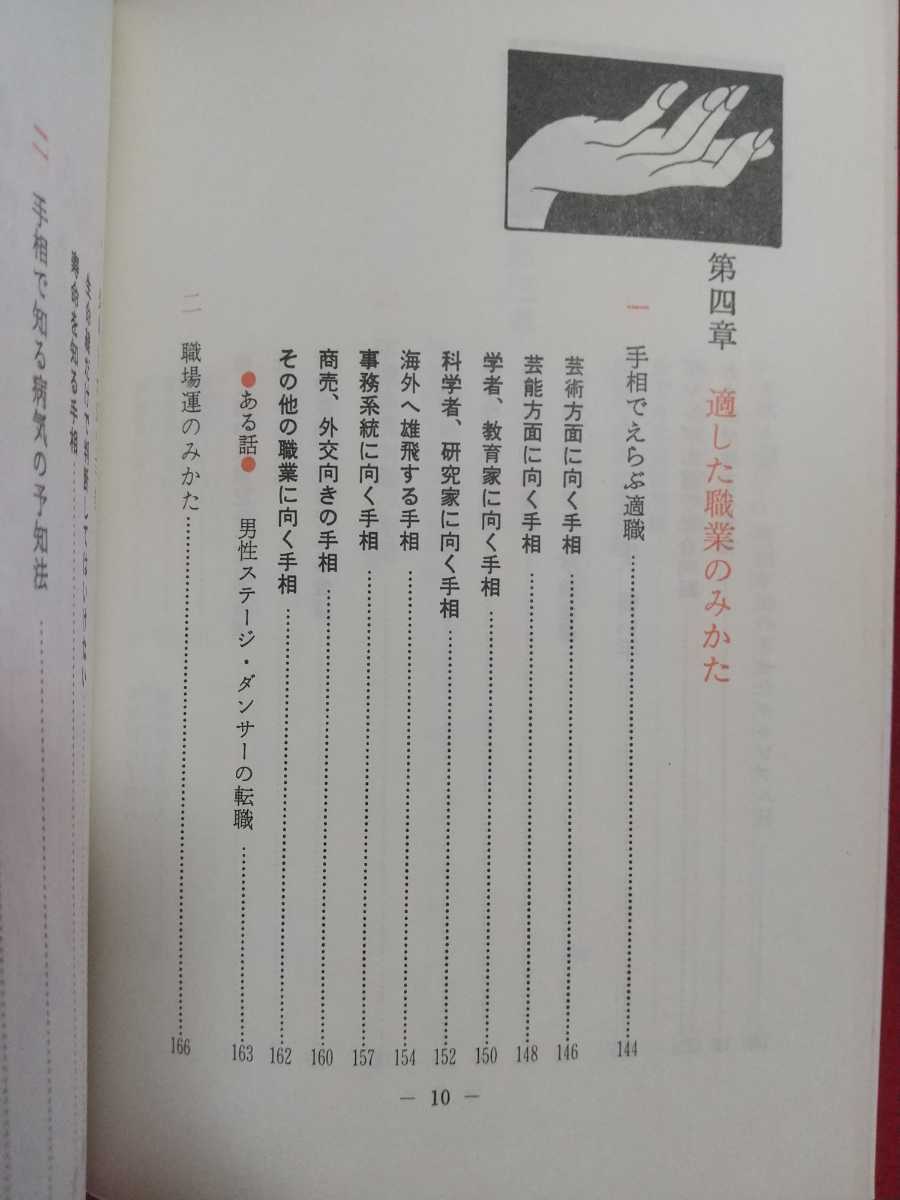 第四章 適した職業のみかた
一 手相でえらぶ適職……144
芸術方面に向く手相……146
芸能方面に向く手相……148
学者、教育家に向く手相……150
科学者、研究家に向く手相……152
海外へ雄飛する手相……154
事務系統に向く手相……157
商売、外交向きの手相……160
その他の職業に向く手相……162
●ある話● 男性ステージ・ダンサーの転職……163
二 職場運のみかた……166
— 10 —
生命線だけで判断してはいけない……
寿命を知る手相……
二 手相で知る病気の予知法……